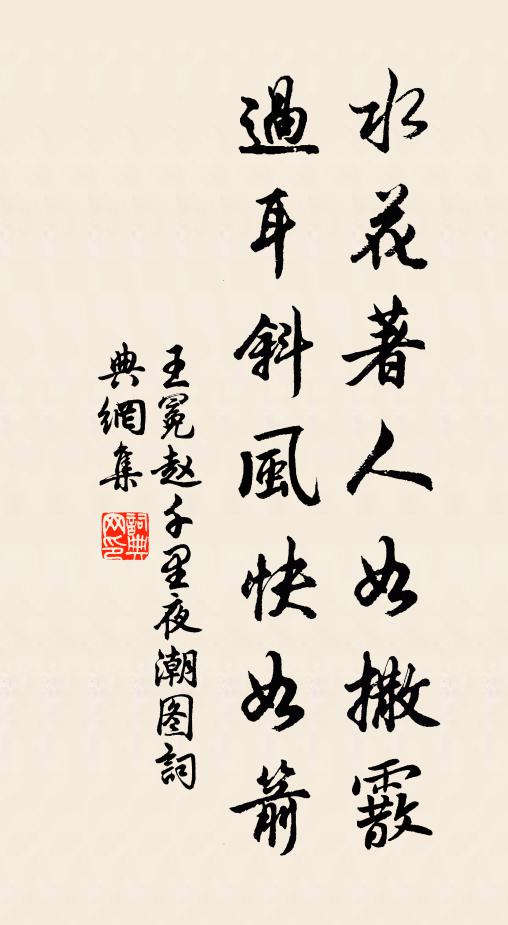 水花著人如撒霰
過耳斜風快如箭
王冕赵千里夜潮图詞
典網集
詞典
网印